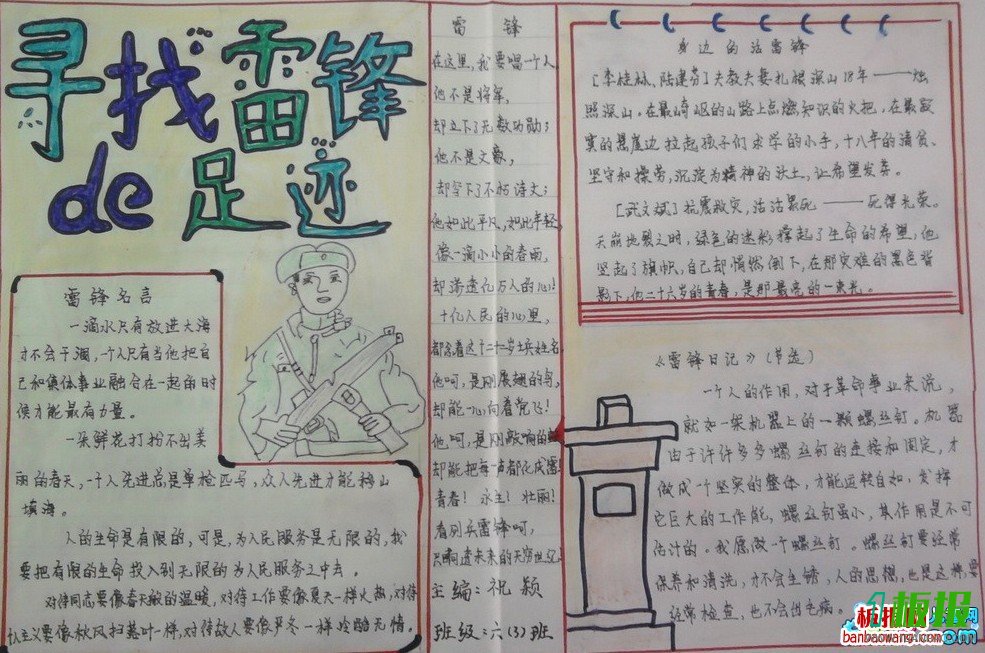 寻找雷锋
de足迹
雷锋名言
一滴水只有放进大海
才不会干涸,一个人只有当他把自
己和集体事业融合在一起的时
侯才能最有力量。
一朵鲜花打扮不出美
丽的春天,一个人先进总是单枪匹马,众人先进才能移山
填海。
人的生命是有限的,可是,为人民服务是无限的,我
要把有限的生命投入到无限的为人民服务之中去。
对待同志要像春天般的温暖,对待工作要像夏天一样火热,对待
主义要像秋风扫落叶一样,对待敌人要像严冬一样冷酷无情。
雷 锋
在这里,我要唱一个人
他不是将军,
却立下了无数功勋;
他不是文豪,
却写下了不朽诗文;
他如此平凡,如此年轻,
像一滴小小的春雨,
却渗透亿万人的心!
十亿人民的心里,
都念着这个二十岁士兵姓名
他呵,是刚展翅的鸟,
却能一心向着党飞!
他呵,是刚敲响的
却能把每一声都化成雷
青春!永生!壮丽!
看列兵雷锋呵,
主编:祝颖
班级:六(3)班
身边的活雷锋
[李桂林,陆建芬]夫教夫妻扎根深山18年——烛
照深山。在最崎岖的山路上点燃知识的火把,在最寂
寞的悬崖边拉起孩子们求学的小手,十八年的清贫、
坚守和操劳,沉淀为精神的沃土,让希望发芽。
[武文斌]抗震救灾,活活累死——死得光荣。
天崩地裂之时,绿色的迷彩撑起了生命的希望,他
竖起了旗帜,自己却悄然倒下,在那灾难的黑色背
影下,他二十六岁的青春,是那最亮的一束光。
《雷锋日记》(节选)
一个人的作用,对于革命事业来说,
就如一架机器上的一颗螺丝钉。机器
由于许许多多螺丝钉的连接和固定,才
做成一个坚实的整体,才能运转自如,发挥
它巨大的工作能,螺丝钉虽小,其作用是不可
估计的。我愿做一个螺丝钉。螺丝钉要经常
保养和清洗,才不会生锈,人的思想,也是这样,要
经常检查,也不会出毛病。
板报
banbaowang.com